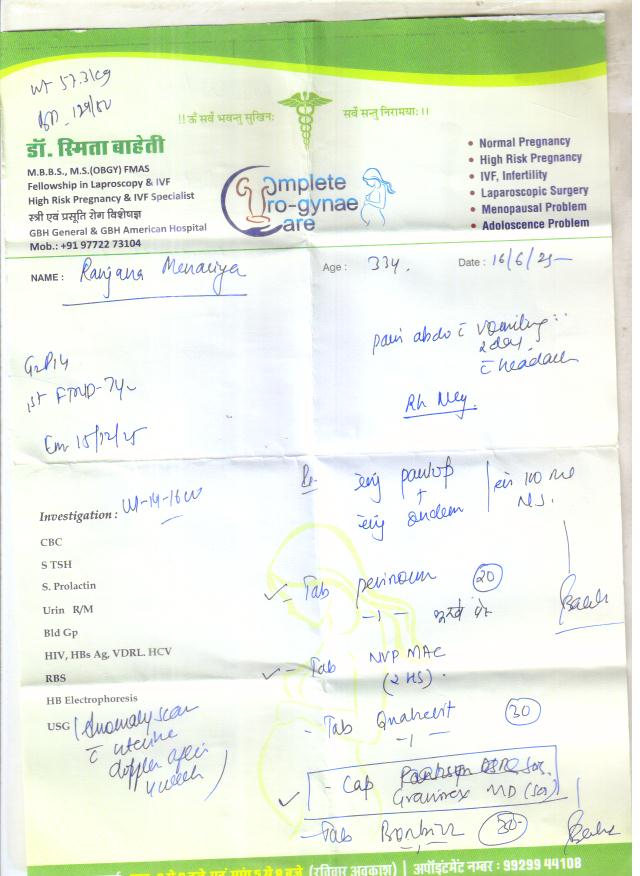 wt 57.3 kg
BP. 129/80
!! ॐ सर्वे भवन्तु सुखिनः सर्वे सन्तु निरामयाः ।।
डॉ. स्मिता बाहेती
M.B.B.S., M.S.(OBGY) FMAS
Fellowship in Laproscopy & IVF
High Risk Pregnancy & IVF Specialist
स्त्री एवं प्रसूति रोग विशेषज्ञ
GBH General & GBH American Hospital
Mob.: +91 97722 73104
Complete
Uro-gynae
Care
• Normal Pregnancy
• High Risk Pregnancy
• IVF, Infertility
• Laparoscopic Surgery
• Menopausal Problem
• Adoloscence Problem
NAME : Ranjana Menariya Age : 33y. Date : 16/6/25
pain abdo c̄ vomiting
2 day
c̄ headache
G2P1L1
1st FTND-7y
Rh Neg.
15/12/25
Rx
inj pantop
+
inj
in 100 ml
N.S.
Investigation :
CBC
S TSH
S. Prolactin
Urin R/M
Bld Gp
HIV, HBs Ag, VDRL. HCV
RBS
HB Electrophoresis
USG (Anomaly scan
c̄ uterine
doppler after
4 week)
✓ - Tab 20
-1-
✓ - Tab NVP MAC
(2 HS).
- Tab 30
-1-
✓ - Cap
MD (SOS)
- Tab 30
(रविवार अवकाश) | अपॉइंटमेंट नम्बर : 99299 44108